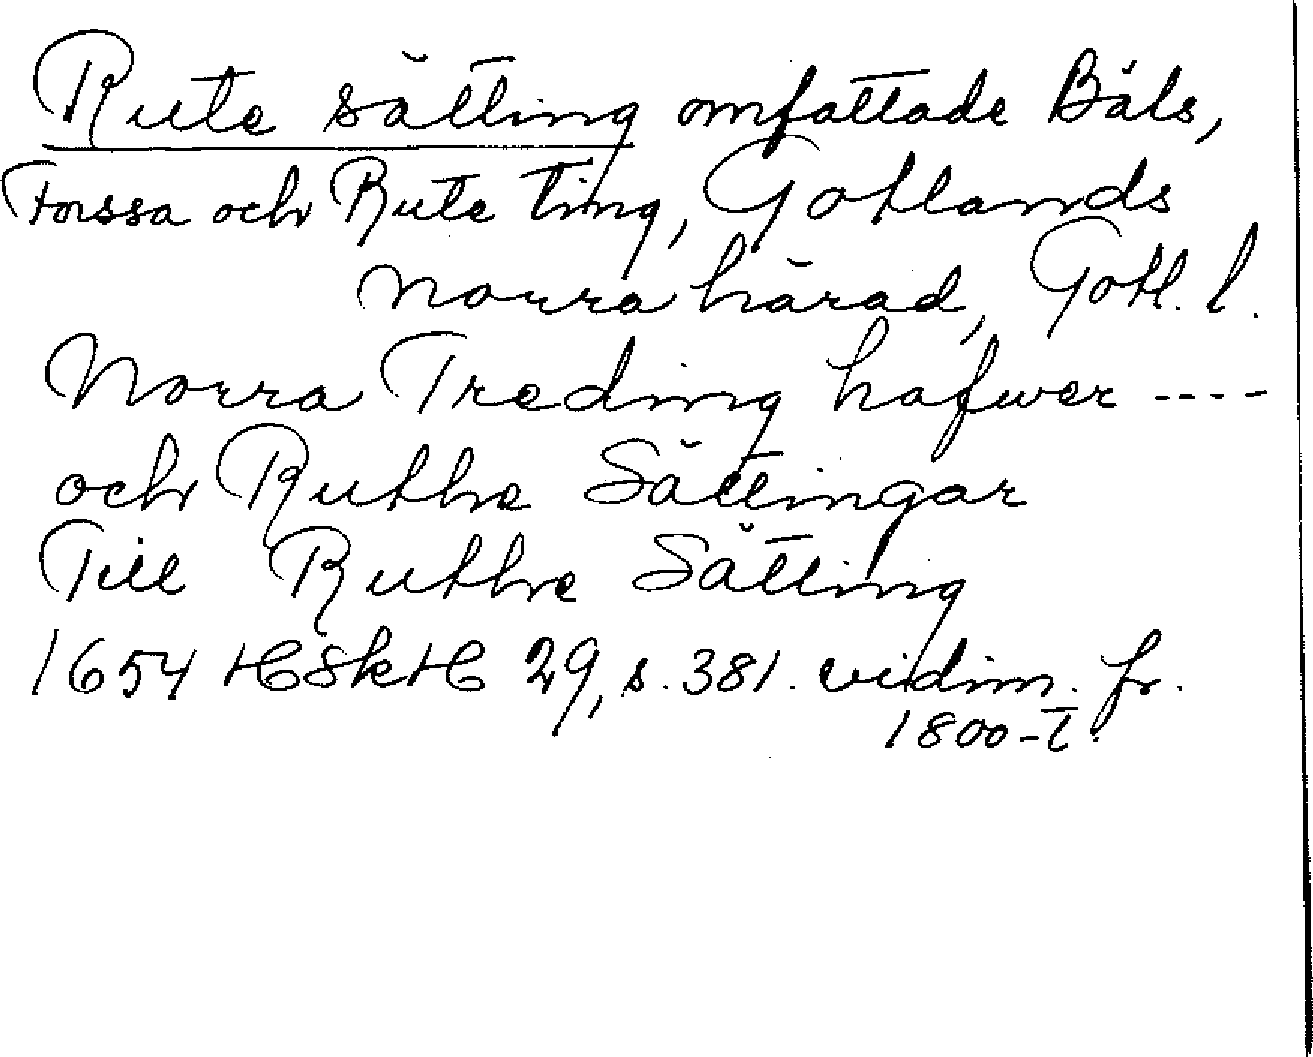 Rute sätting omfattade Bäls,
Forssa och Rute ting, Gotlands
norra härad, Gotl. l.
Norra Treding hafwer ----
och Ruthe Sättingar
Till Ruthe Sätting
1654 HSkH 29, s. 381. vidim. fr.
1800-t.